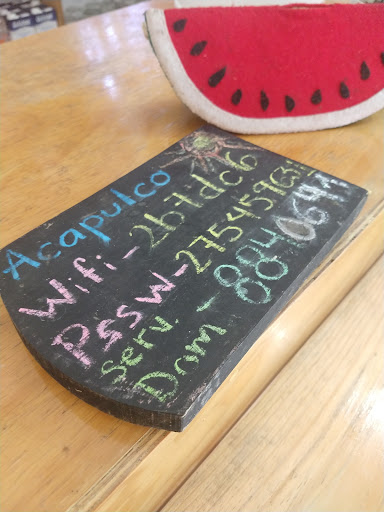 Acapulco
Wifi-2b7dc6
Pssw-27545963
Serv. - 884064
Dom